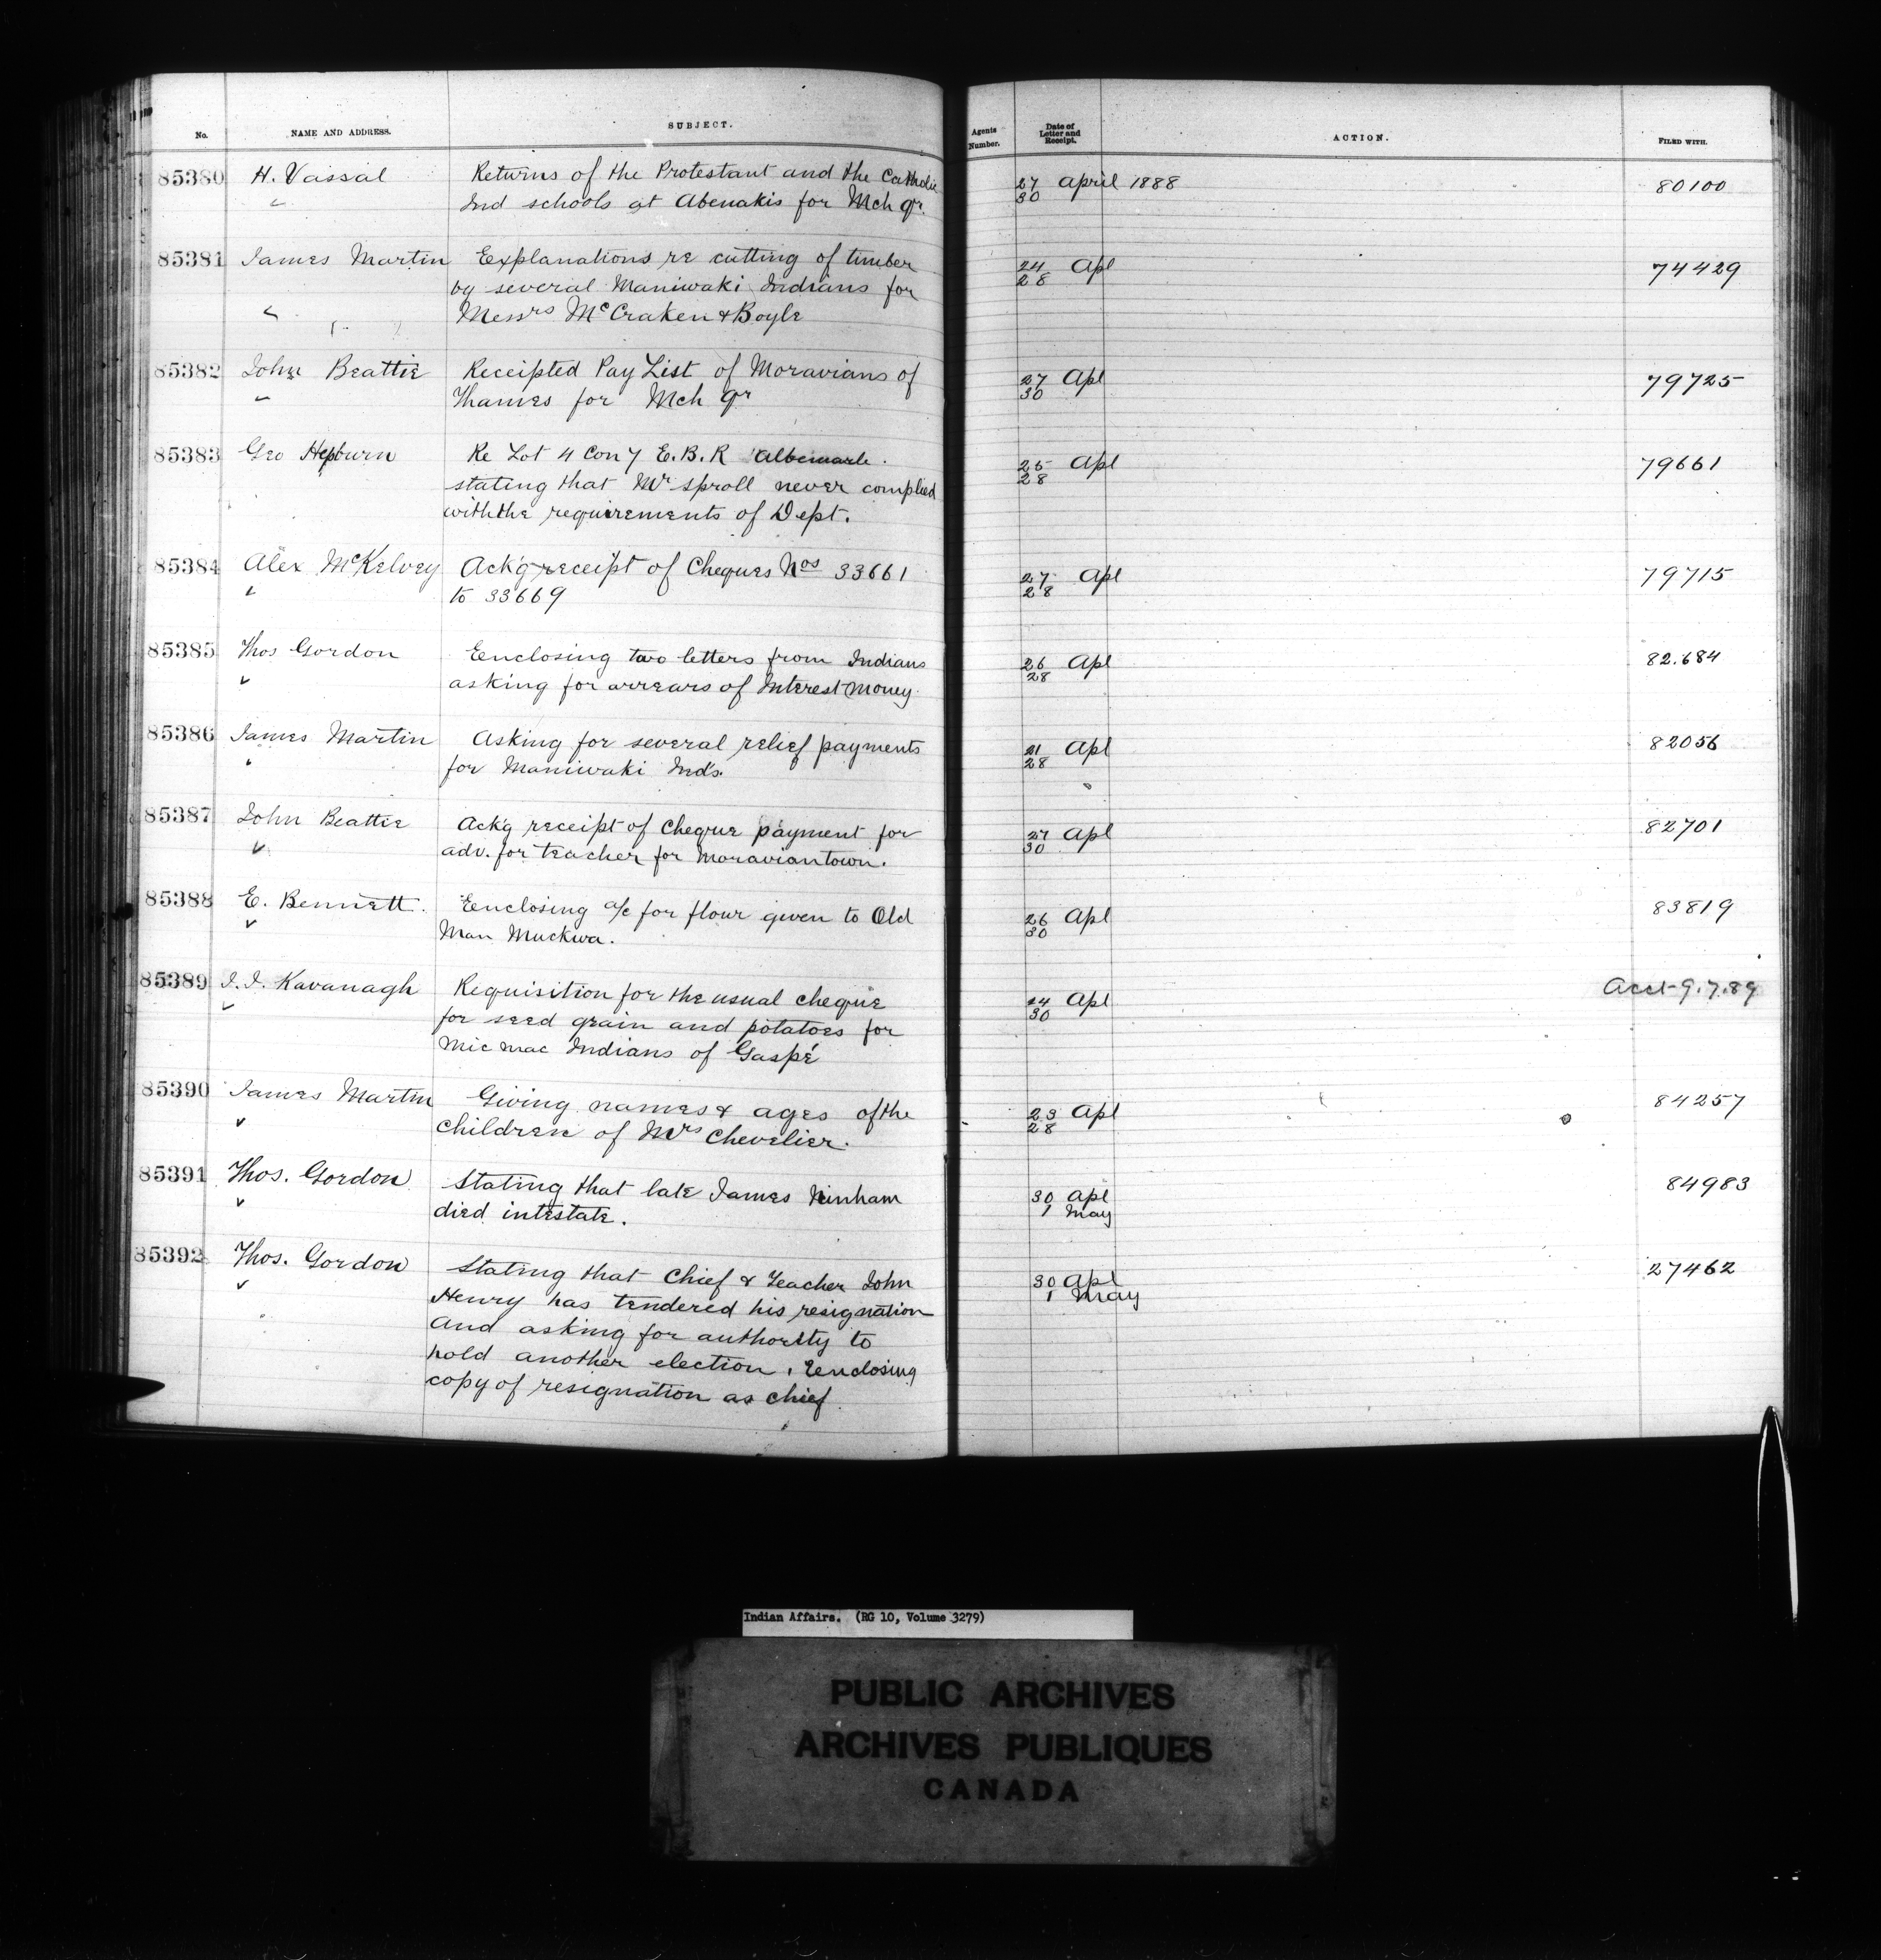 No. NAME AND ADDRESS. SUBJECT. Agents Number. Date of Letter and Receipt. ACTION. FILED WITH.
85380 H. Vassal Returns of the Protestant and the Catholic 27 April 1888 80100
" Ind schools at Abenakis for Mch qr. 30
85381 James Martin Explanations re cutting of timber 24 Apl 74429
by several Maniwaki Indians for 28
" Messrs McCraken & Boyle
85382 John Beattie Receipted Pay List of Moravians of 27 Apl 79725
" Thames for Mch qr 30
85383 Geo Hepburn Re Lot 4 Con 7 E.B.R Albemarle. 25 Apl 79661
stating that Mr Sproll never complied 28
with the requirements of Dept.
85384 Alex McKelvey Ack'g receipt of Cheques Nos 33661 27 Apl 79715
" to 33669 28
85385 Thos Gordon Eenclosing two letters from Indians 26 Apl 82.684
" asking for arrears of Interest Money. 28
85386 James Martin Asking for several relief payments 21 Apl 82056
" for Maniwaki Inds. 28
85387 John Beattie Ack'g receipt of Cheque payment for 27 Apl 82701
" adv. for teacher for Moraviantown. 30
85388 E. Bennett. Eenclosing a/c for flour given to Old 26 Apl 83819
" Man Muckwa. 30
85389 J. J. Kavanagh Requisition for the usual cheque 24 Apl Acct 9.7.89
" for seed grain and potatoes for 30
Mic mac Indians of Gaspé
85390 James Martin Giving names & ages of the 23 Apl 84257
" children of Mrs Chevelier. 28
85391 Thos. Gordon Stating that late James Ninham 30 Apl 84983
" died intestate. 1 May
85392 Thos. Gordon Stating that Chief & Teacher John 30 Apl 27462
" Henry has tendered his resignation 1 May
and asking for authority to
hold another election, Eenclosing
copy of resignation as chief
Indian Affairs. (RG 10, Volume 3279)
PUBLIC ARCHIVES
ARCHIVES PUBLIQUES
CANADA